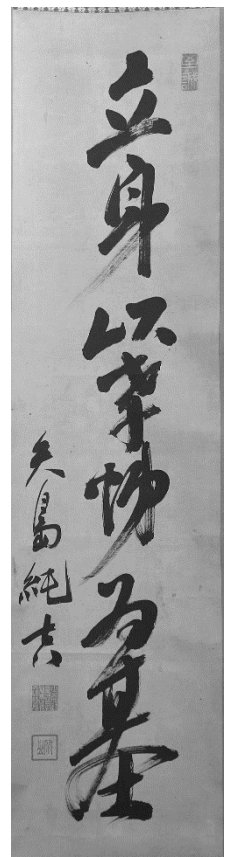 立身以孝悌為基
矢島純吉